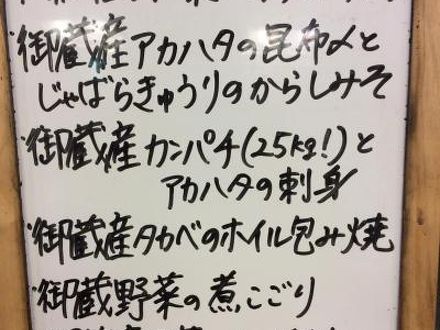 ・御蔵産アカハタの昆布〆と
じゃばらきゅうりのからしみそ
・御蔵産カンパチ(25kg!)と
アカハタの刺身
・御蔵産タカベのホイル包み焼
・御蔵野菜の煮こごり